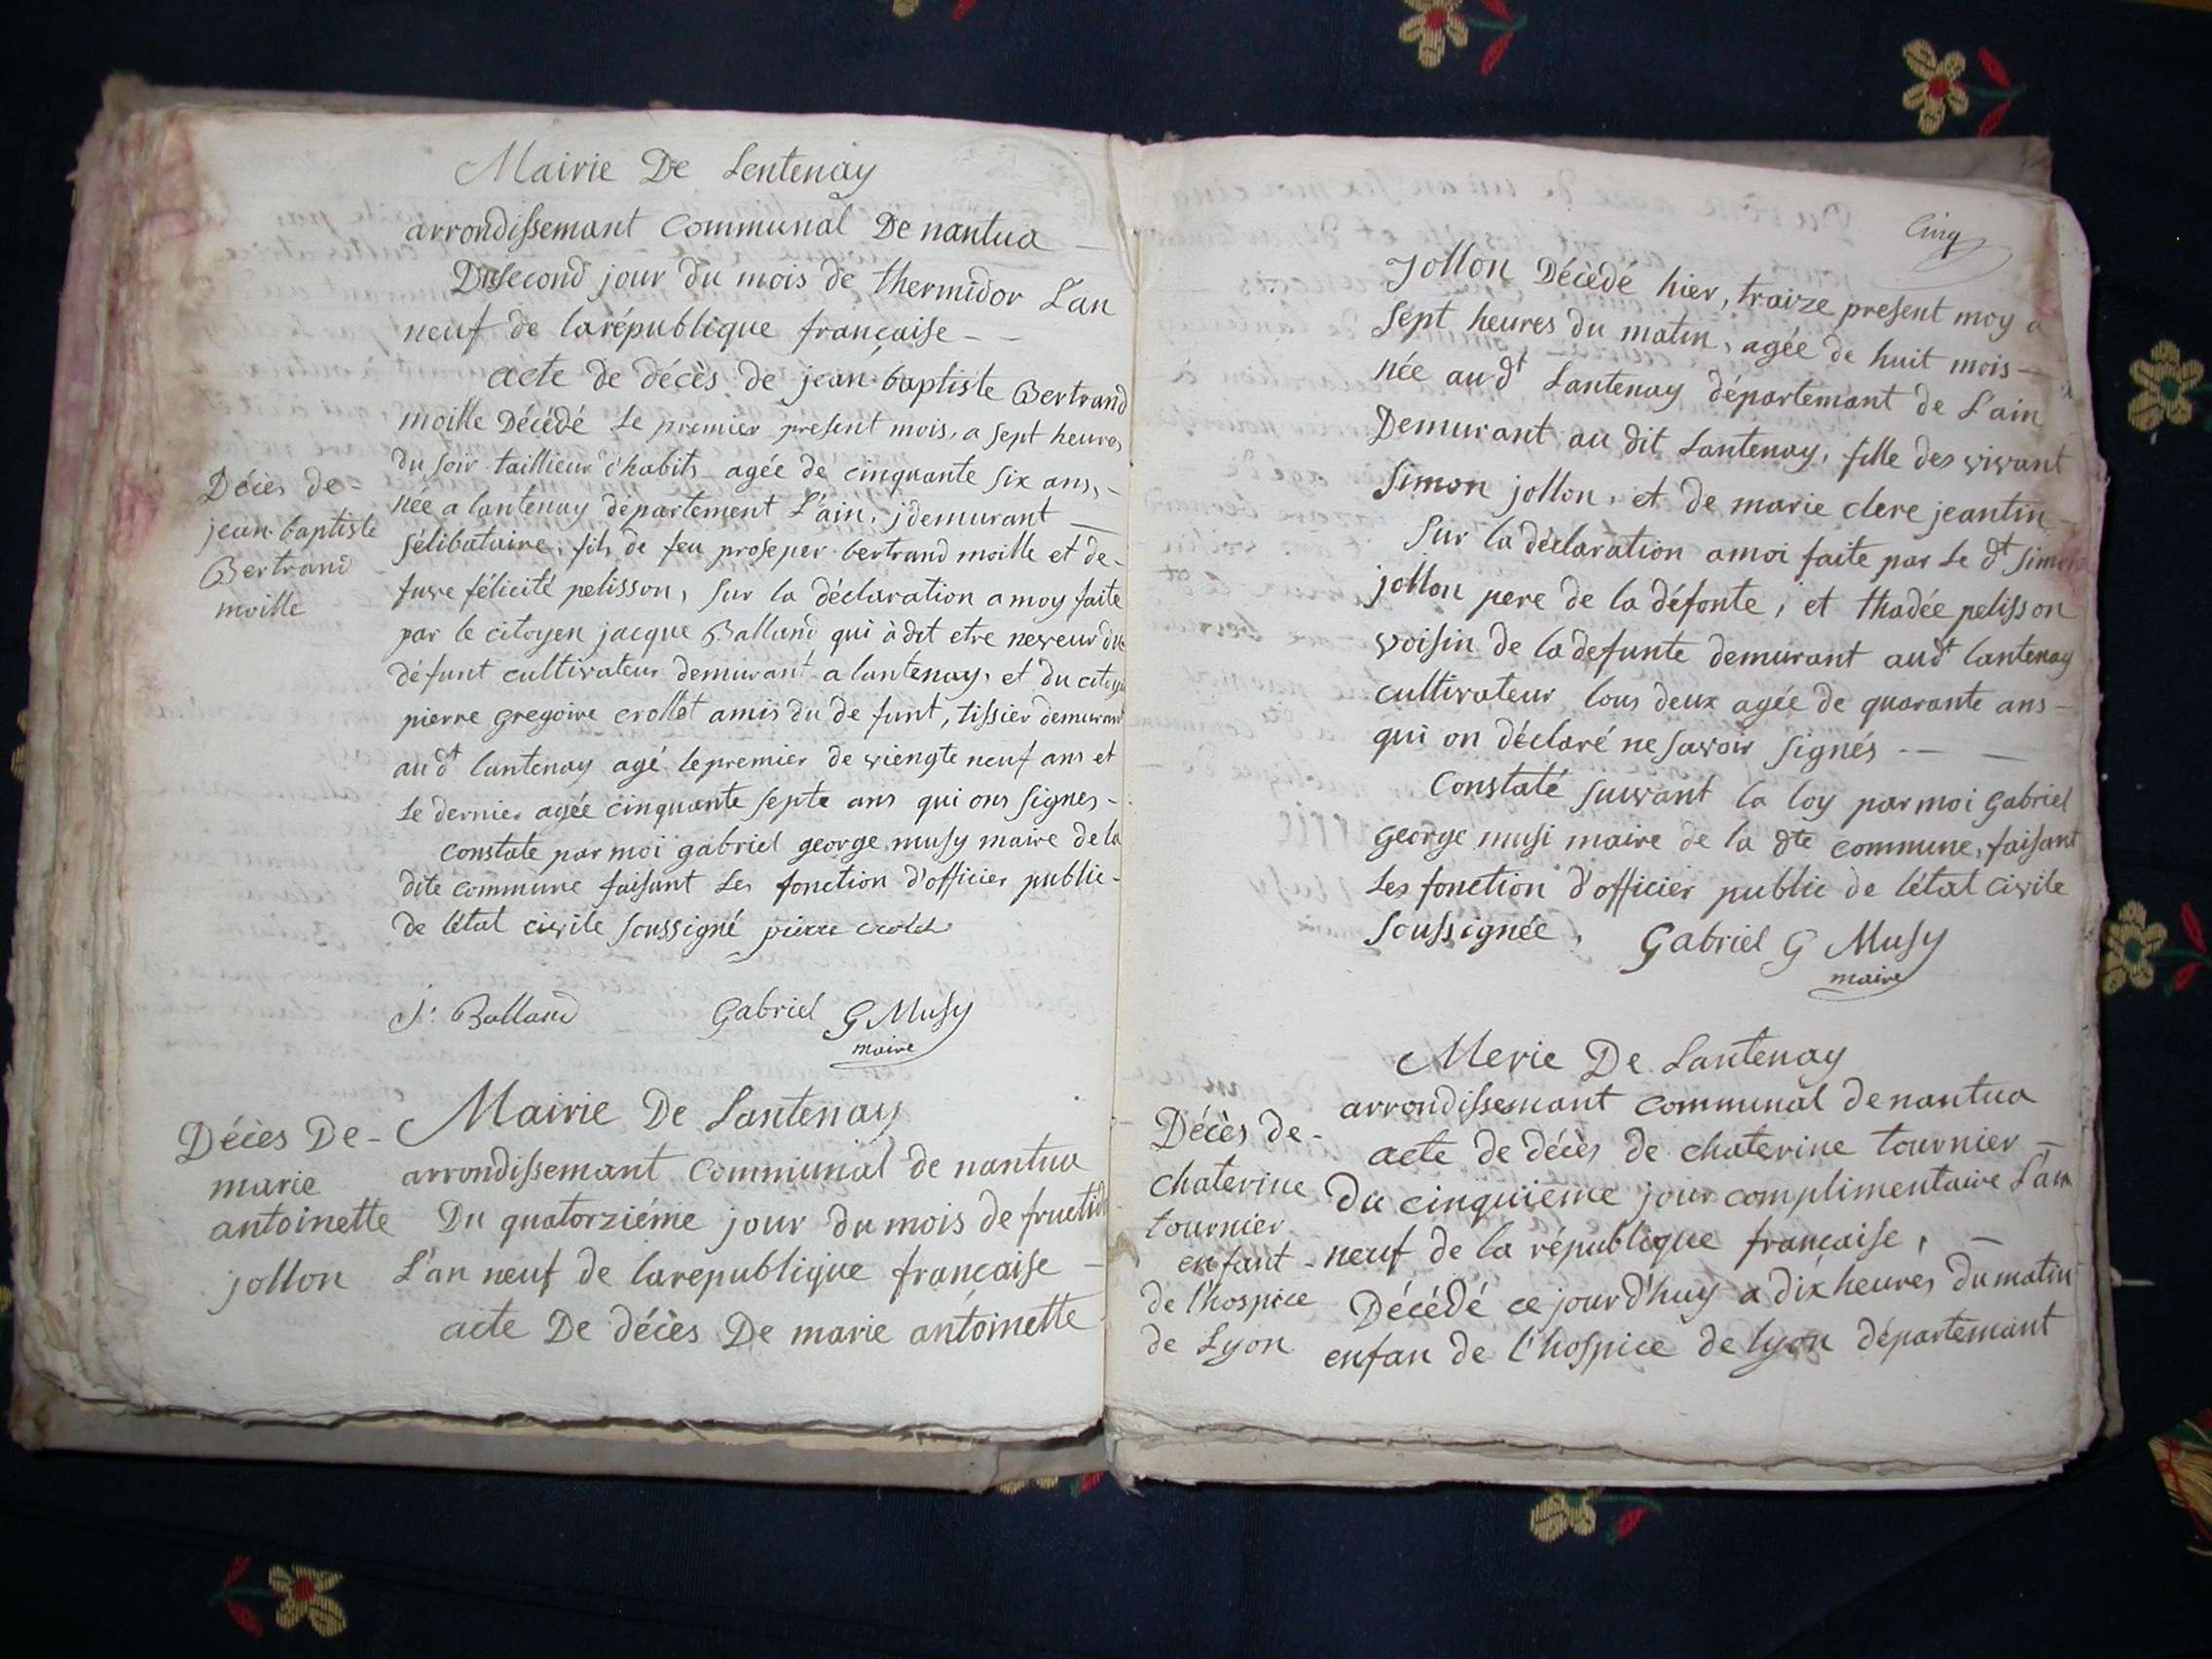 Mairie De Lentenay
arrondissemant Communal De nantua
Du second jour du mois de thermidor L'an
neuf de la république française
acte de décès de jean-baptiste Bertrand
moille Décédé Le premier present mois, a sept heures
du soir taillieur d'habits agée de cinquante six ans,
née a lantenay département L'ain, j demurant
sélibataire, fils de feu proseper bertrand moille et de
fuve félicité pelisson, sur la déclaration a moy faite
par le citoyen jacque Balland qui à dit etre neveur du
défunt cultivateur demurant a lantenay, et du citoyen
pierre gregoire crollet amis du defunt, tissier demurant
au dt lantenay agé le premier de viengte neuf ans et
Le dernier agée cinquante septe ans qui ons signes
constate par moi gabriel george musy maire de la
dite commune faisant Les fonction d'officier public
de létat civile soussigné pierre crolet
J. Balland Gabriel G Musy
maire
Décès de
jean-baptiste
Bertrand
moille
Mairie De Lantenay
arrondissemant Communal de nantua
Du quatorziéme jour du mois de fructidor
L'an neuf de la republique française
acte De décès De marie antoinette
Décès De
marie
antoinette
jollon
Cinq
Jollon Décèdé hier, traize present moy a
sept heures du matin, agée de huit mois
née au dt Lantenay département de L'ain
Demurant au dit Lantenay, fille des vivant
Simon jollon, et de marie clere jeantin
Sur la déclaration a moi faite par Le dt simon
jollon pere de la défonte, et thadée pelisson
voisin de la defunte demurant au dt lantenay
cultivateur tous deux agée de quarante ans
qui on déclaré ne savoir signés
Constaté suivant la loy par moi Gabriel
George musi maire de la dte commune, faisant
Les fonction d'officier public de létat civile
soussignée, Gabriel G Musy
maire
Merie De Lantenay
arrondissemant communal de nantua
acte de décès de chaterine tournier
Du cinquieme jour complimentaire L'an
neuf de la république française,
Décédé ce jourd'huy a dix heures du matin
enfan de l'hospice de lyon départemant
Décès de
chaterine
tournier
enfant
de l'hospice
de Lyon